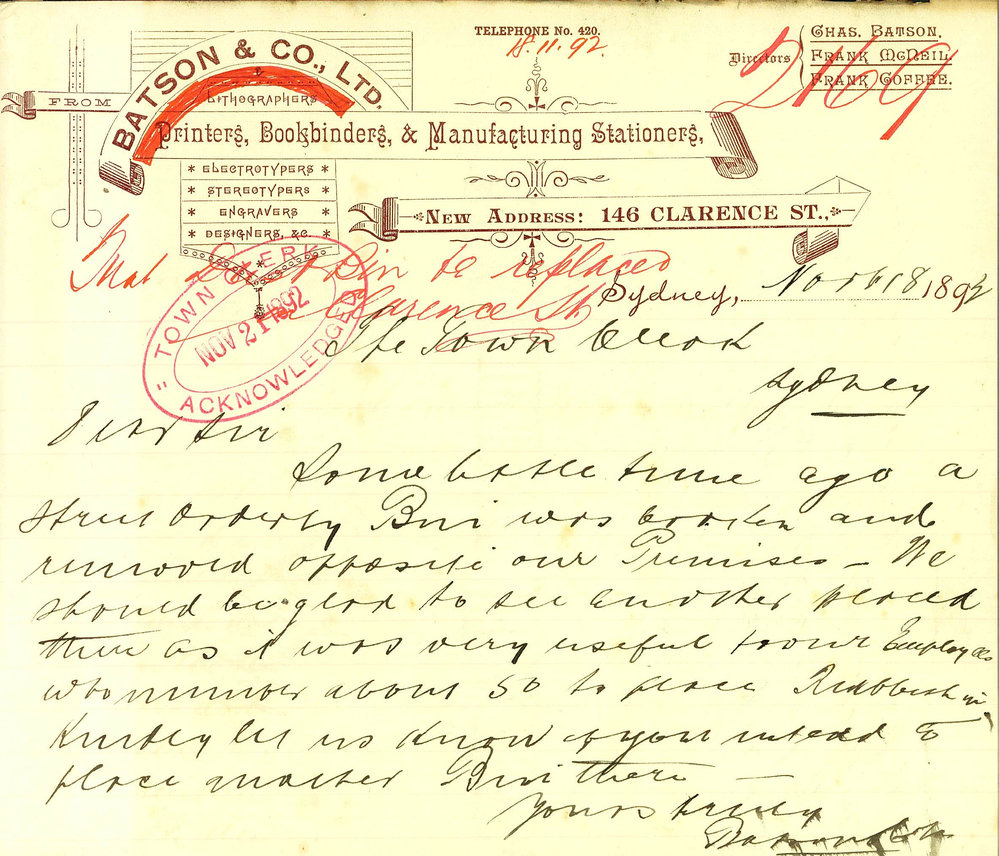 TELEPHONE No. 420.
18.11.92
2169
Directors
CHAS. BATSON.
FRANK McNEIL.
FRANK COFFEE.
FROM
BATSON & CO., LTD.
LITHOGRAPHERS
Printers, Bookbinders, & Manufacturing Stationers,
* ELECTROTYPERS *
* STEREOTYPERS *
* ENGRAVERS *
* DESIGNERS, &C. *
NEW ADDRESS: 146 CLARENCE ST.,
That Bin be replaced
Clarence St
TOWN CLERK
NOV 21 1892
ACKNOWLEDGED
Sydney, Novbr 18 1892
The Town Clerk
Sydney
Dear Sir
Some little time ago a
Street Orderly Bin was broken and
removed opposite our Premises – We
should be glad to see another placed
there as it was very useful to our Employees
who number about 50 to place Rubbish in
Kindly let us know if you intend to
place another Bin there –
Yours truly
Batson & Co